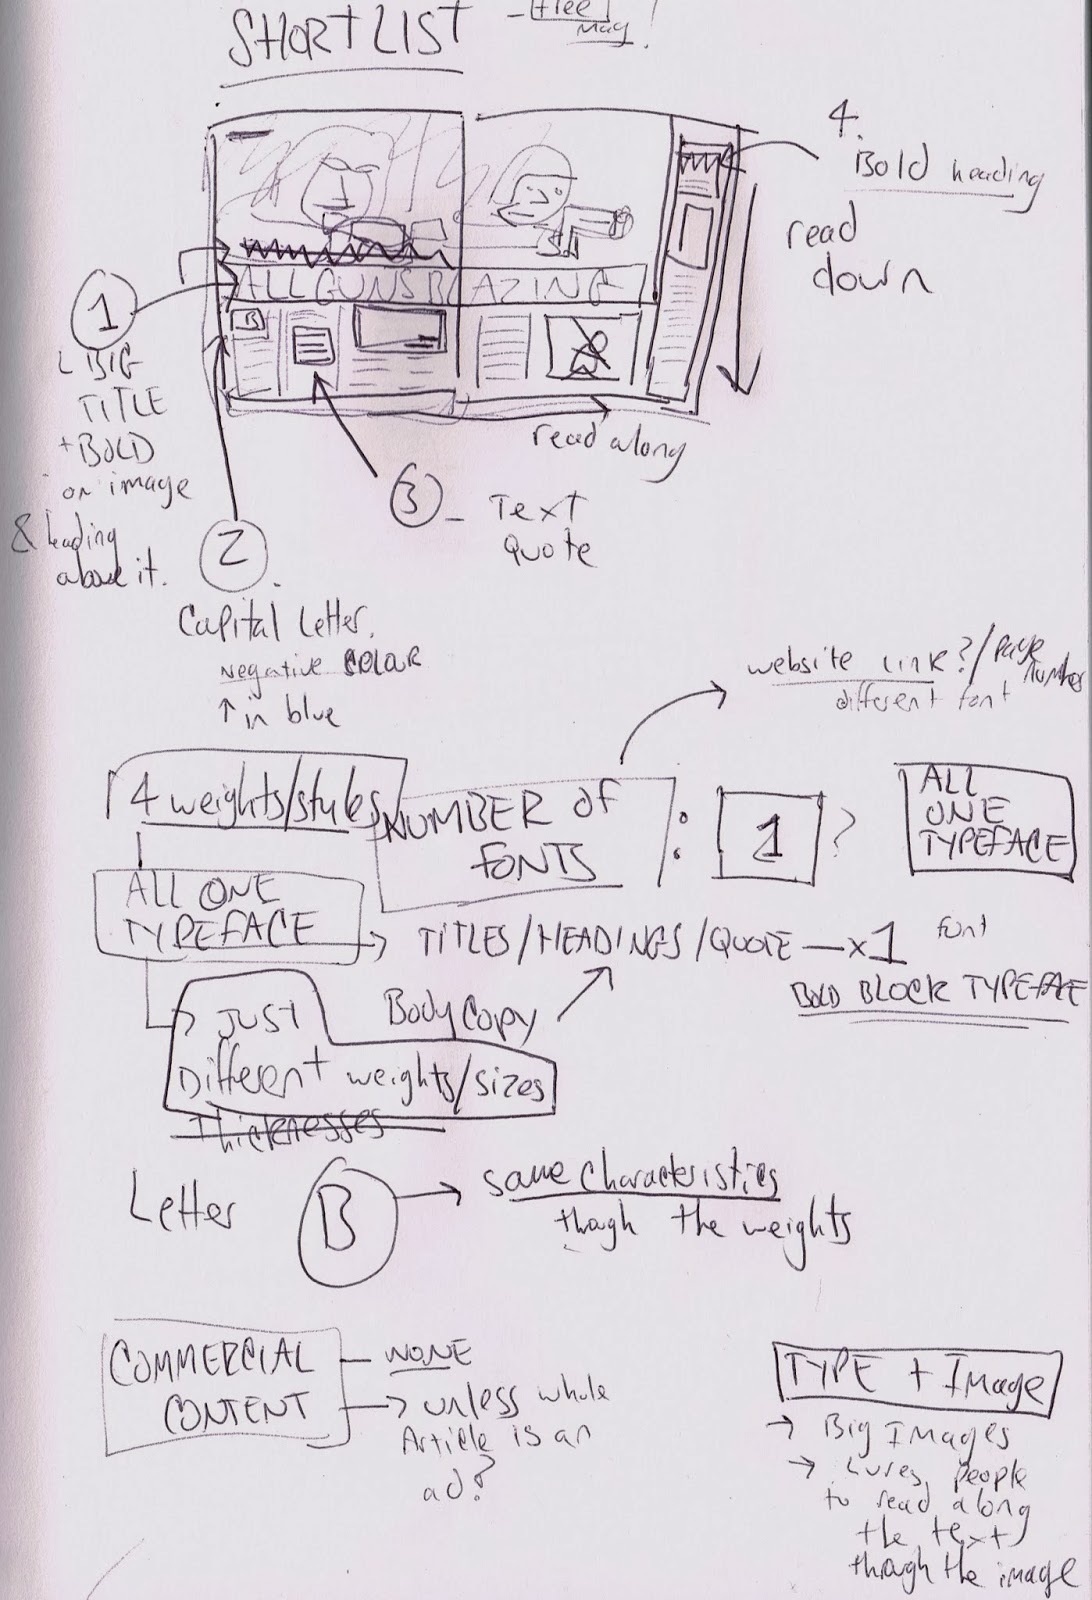 SHORTLIST
- free
mag!
4.
Bold heading
read
down
ALL GUNS BLAZING
B
1
BIG
TITLE
+ BOLD
on image
& heading
above it.
read along
3 - Text
Quote
2.
Capital Letter.
Negative COLOUR
↑ in blue
website link? / page
number
different font
4 weights/styles
NUMBER OF
FONTS
:
1
?
ALL
ONE
TYPEFACE
ALL ONE
TYPEFACE
→ TITLES/HEADINGS/QUOTE — x1 font
BOLD BLOCK TYPEFACE
Body Copy
→ JUST
Different weights/sizes
thicknesses
Letter B → same characteristics
though the weights
COMMERCIAL
CONTENT
- NONE
→ unless whole
Article is an
ad?
TYPE + Image
→ Big IMAGES
→ Lures people
to read along
the text
though the image